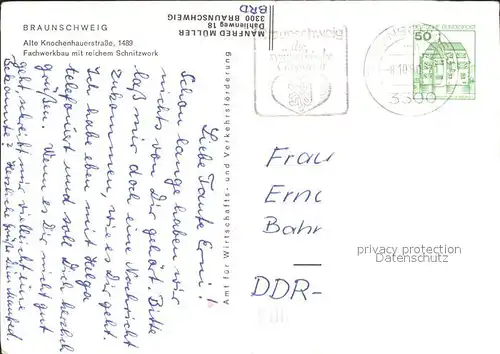 BRAUNSCHWEIG
Alte Knochenhauerstraße, 1489
Fachwerkbau mit reichem Schnitzwerk
MANFRED MÜLLER
Dahlienweg 18
3300 BRAUNSCHWEIG
BRD
Amt für Wirtschafts- und Verkehrsförderung
Liebe Tante Erni!
Schon lange haben wir
nichts von Dir gehört. Bitte
laß mir doch eine Nachricht
zukommen, wie es Dir geht.
Ich habe eben mit Helga
telefoniert und soll Dich herzlich
grüßen. Wenn es Dir nicht gut
geht, schreibt mir vielleicht eine
Bekannte? Herzliche Grüße Dein Manfred
Braunschweig
die
50
3300
Frau
Erne
Bahn
DDR-
privacy protection
Datenschutz